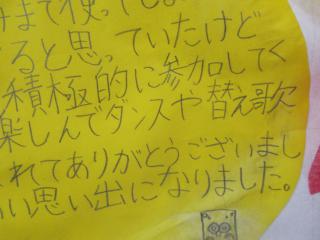 まで使ってしま
ると思っていたけど
積極的に参加してく
楽しんでダンスや替え歌
れてありがとうございまし
い思い出になりました。